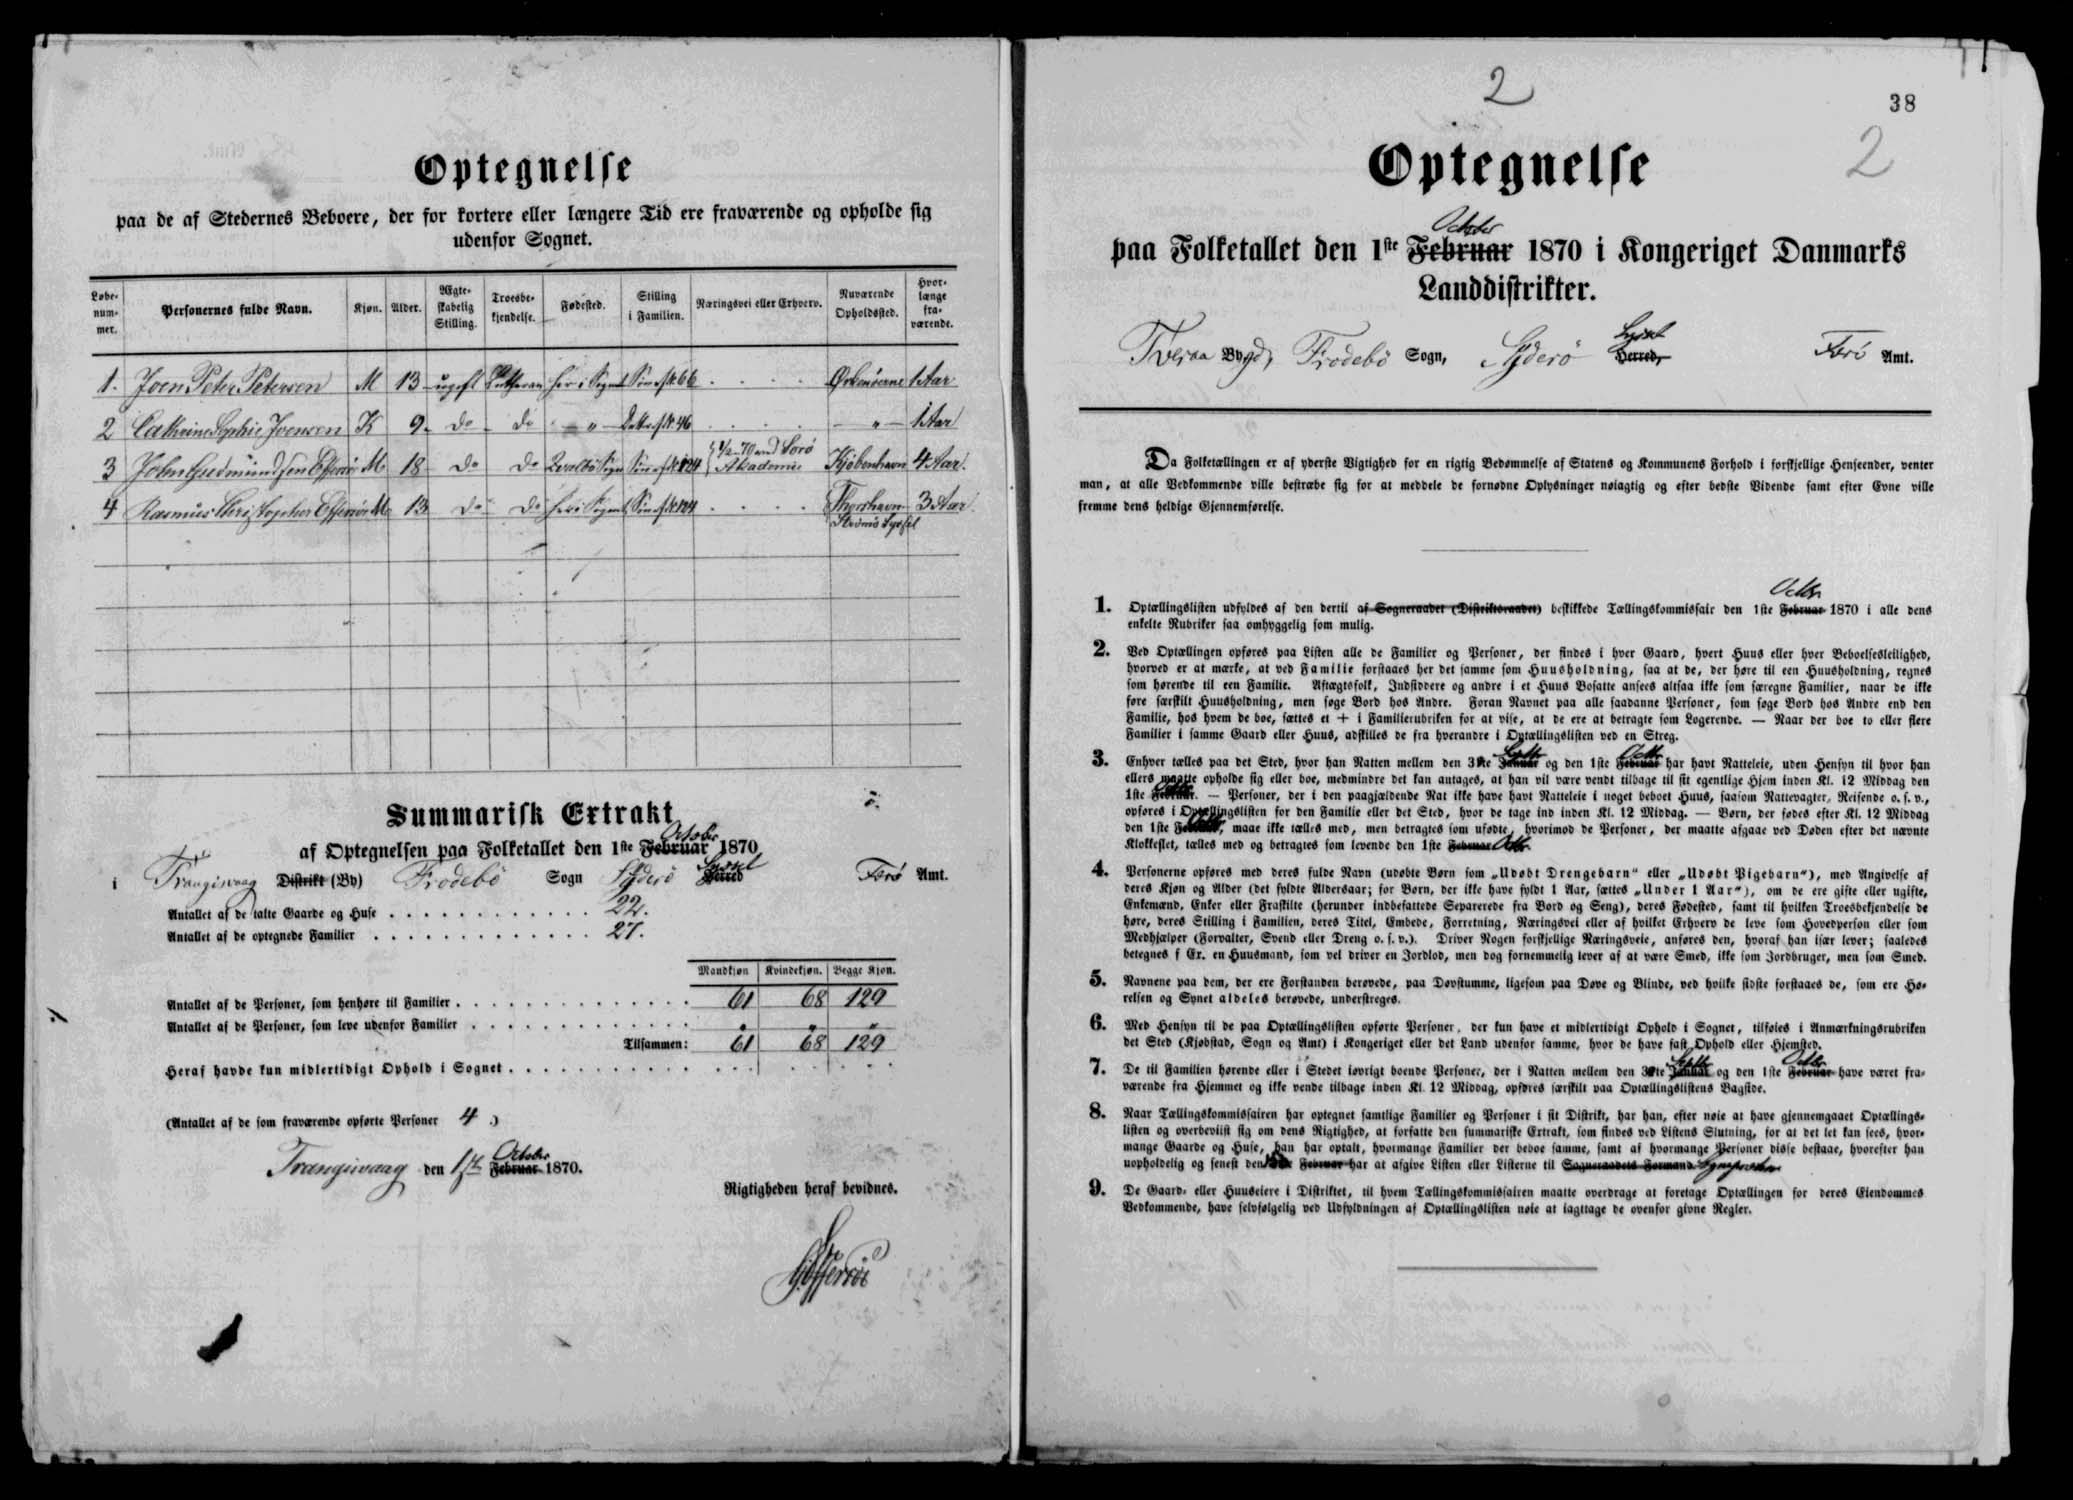 Optegnelse
paa de af Stedernes Beboere, der for kortere eller længere Tid ere fraværende og opholde sig
udenfor Sognet.
Løbe-nummer. Personernes fulde Navn. Kjøn. Alder. Ægteskabelig Stilling. Troesbekjendelse. Fødested. Stilling i Familien. Næringsvei eller Erhverv. Nuværende Opholdssted. Hvorlænge fraværende.
1. Joen Peter Petersen M 13 ugift Lutheran her i Sognet Søn af № 66 . . . . Ørkenöerne 1 Aar
2 Cathrine Sophie Joensen K 9 do do " Datter af № 46 . . . . " 1 Aar
3 John Gudmundsen Effersöe M 18 do do Qvalbö Sogn Søn af № 124 ved Sorö Akademie Kjöbenhavn 4 Aar.
4 Rasmus Christopher Effersöe M 13 do do her i Sognet Søn af № 124 . . . . Thorshavn 3 Aar.
Strömö Syssel
Summarisk Extrakt
October
af Optegnelsen paa Folketallet den 1ste Februar 1870
Syssel
i Trangisvaag Distrikt (By) Frodebö Sogn Syderö Herred Færö Amt.
Antallet af de talte Gaarde og Huse . . . . . . . . . . . . 22.
Antallet af de optegnede Familier . . . . . . . . . . . . . 27.
Mandkjøn Kvindekjøn. Begge Kjøn.
Antallet af de Personer, som henhøre til Familier . . . . . . . . . . . . . . 61 68 129
Antallet af de Personer, som leve udenfor Familier . . . . . . . . . . . . . . " " "
Tilsammen: 61 68 129
Heraf havde kun midlertidigt Ophold i Sognet . . . . . . . . . . . .
(Antallet af de som fraværende opførte Personer 4 .)
October
Trangisvaag den 1ste Februar 1870.
Rigtigheden heraf bevidnes.
Effersöe
2
38
2
Optegnelse
October
paa Folketallet den 1ste Februar 1870 i Kongeriget Danmarks
Landdistrikter.
Syssel
Tveraa Bygd, Frodebö Sogn, Syderö Herred, Færö Amt.
Da Folketællingen er af yderste Vigtighed for en rigtig Bedømmelse af Statens og Kommunens Forhold i forskjellige Henseender, venter
man, at alle Vedkommende ville bestræbe sig for at meddele de fornødne Oplysninger nøiagtig og efter bedste Vidende samt efter Evne ville
fremme dens heldige Gjennemførelse.
Octbr
1. Optællingslisten udfyldes af den dertil af Sogneraadet (Distriktsraadet) beskikkede Tællingskommissair den 1ste Februar 1870 i alle dens
enkelte Rubriker saa omhyggelig som mulig.
2. Ved Optællingen opføres paa Listen alle de Familier og Personer, der findes i hver Gaard, hvert Huus eller hver Beboelsesleilighed,
hvorved er at mærke, at ved Familie forstaaes her det samme som Huusholdning, saa at de, der høre til een Huusholdning, regnes
som hørende til een Familie. Aftægtsfolk, Indsiddere og andre i et Huus Bosatte ansees altsaa ikke som særegne Familier, naar de ikke
føre særskilt Huusholdning, men søge Bord hos Andre. Foran Navnet paa alle saadanne Personer, som søge Bord hos Andre end den
Familie, hos hvem de boe, sættes et + i Familierubriken for at vise, at de ere at betragte som Logerende. — Naar der boe to eller flere
Familier i samme Gaard eller Huus, adskilles de fra hverandre i Optællingslisten ved en Streg.
Septbr Octbr
3. Enhver tælles paa det Sted, hvor han Natten mellem den 31te Januar og den 1ste Februar har havt Natteleie, uden Hensyn til hvor han
ellers maatte opholde sig eller boe, medmindre det kan antages, at han vil være vendt tilbage til sit egentlige Hjem inden Kl. 12 Middag den
1ste Februar. — Personer, der i den paagjældende Nat ikke have havt Natteleie i noget beboet Huus, saasom Nattevagter, Reisende o. s. v.,
opføres i Optællingslisten for den Familie eller det Sted, hvor de tage ind inden Kl. 12 Middag. — Børn, der fødes efter Kl. 12 Middag
den 1ste Februar, maae ikke tælles med, men betragtes som ufødte, hvorimod de Personer, der maatte afgaae ved Døden efter det nævnte
Klokkeslet, tælles med og betragtes som levende den 1ste Februar Octbr
4. Personerne opføres med deres fulde Navn (udøbte Børn som „Udøbt Drengebarn“ eller „Udøbt Pigebarn“), med Angivelse af
deres Kjøn og Alder (det fyldte Aldersaar; for Børn, der ikke have fyldt 1 Aar, sættes „Under 1 Aar“), om de ere gifte eller ugifte,
Enkemænd, Enker eller Fraskilte (herunder indbefattede Separerede fra Bord og Seng), deres Fødested, samt til hvilken Troesbekjendelse de
høre, deres Stilling i Familien, deres Titel, Embede, Forretning, Næringsvei eller af hvilket Erhverv de leve som Hovedperson eller som
Medhjælper (Forvalter, Svend eller Dreng o. s. v.). Driver Nogen forskjellige Næringsveie, anføres den, hvoraf han især lever; saaledes
betegnes f Ex. en Huusmand, som vel driver en Jordlod, men dog fornemmelig lever af at være Smed, ikke som Jordbruger, men som Smed.
5. Navnene paa dem, der ere Forstanden berøvede, paa Døvstumme, ligesom paa Døve og Blinde, ved hvilke sidste forstaaes de, som ere Hø-
relsen og Synet aldeles berøvede, understreges.
6. Med Hensyn til de paa Optællingslisten opførte Personer, der kun have et midlertidigt Ophold i Sognet, tilføies i Anmærkningsrubriken
det Sted (Kjøbstad, Sogn og Amt) i Kongeriget eller det Land udenfor samme, hvor de have fast Ophold eller Hjemsted.
Septbr Octbr
7. De til Familien hørende eller i Stedet iøvrigt boende Personer, der i Natten mellem den 31te Januar og den 1ste Februar have været fra-
værende fra Hjemmet og ikke vende tilbage inden Kl. 12 Middag, opføres særskilt paa Optællingslistens Bagside.
8. Naar Tællingskommissairen har optegnet samtlige Familier og Personer i sit Distrikt, har han, efter nøie at have gjennemgaaet Optællings-
listen og overbeviist sig om dens Rigtighed, at forfatte den summariske Extrakt, som findes ved Listens Slutning, for at det let kan sees, hvor-
mange Gaarde og Huse, han har optalt, hvormange Familier der beboe samme, samt af hvormange Personer disse bestaae, hvorefter han
uopholdelig og senest den Februar har at afgive Listen eller Listerne til Sogneraadets Formand
9. De Gaard- eller Huuseiere i Distriktet, til hvem Tællingskommissairen maatte overdrage at foretage Optællingen for deres Eiendommes
Vedkommende, have selvfølgelig ved Udfyldningen af Optællingslisten nøie at iagttage de ovenfor givne Regler.